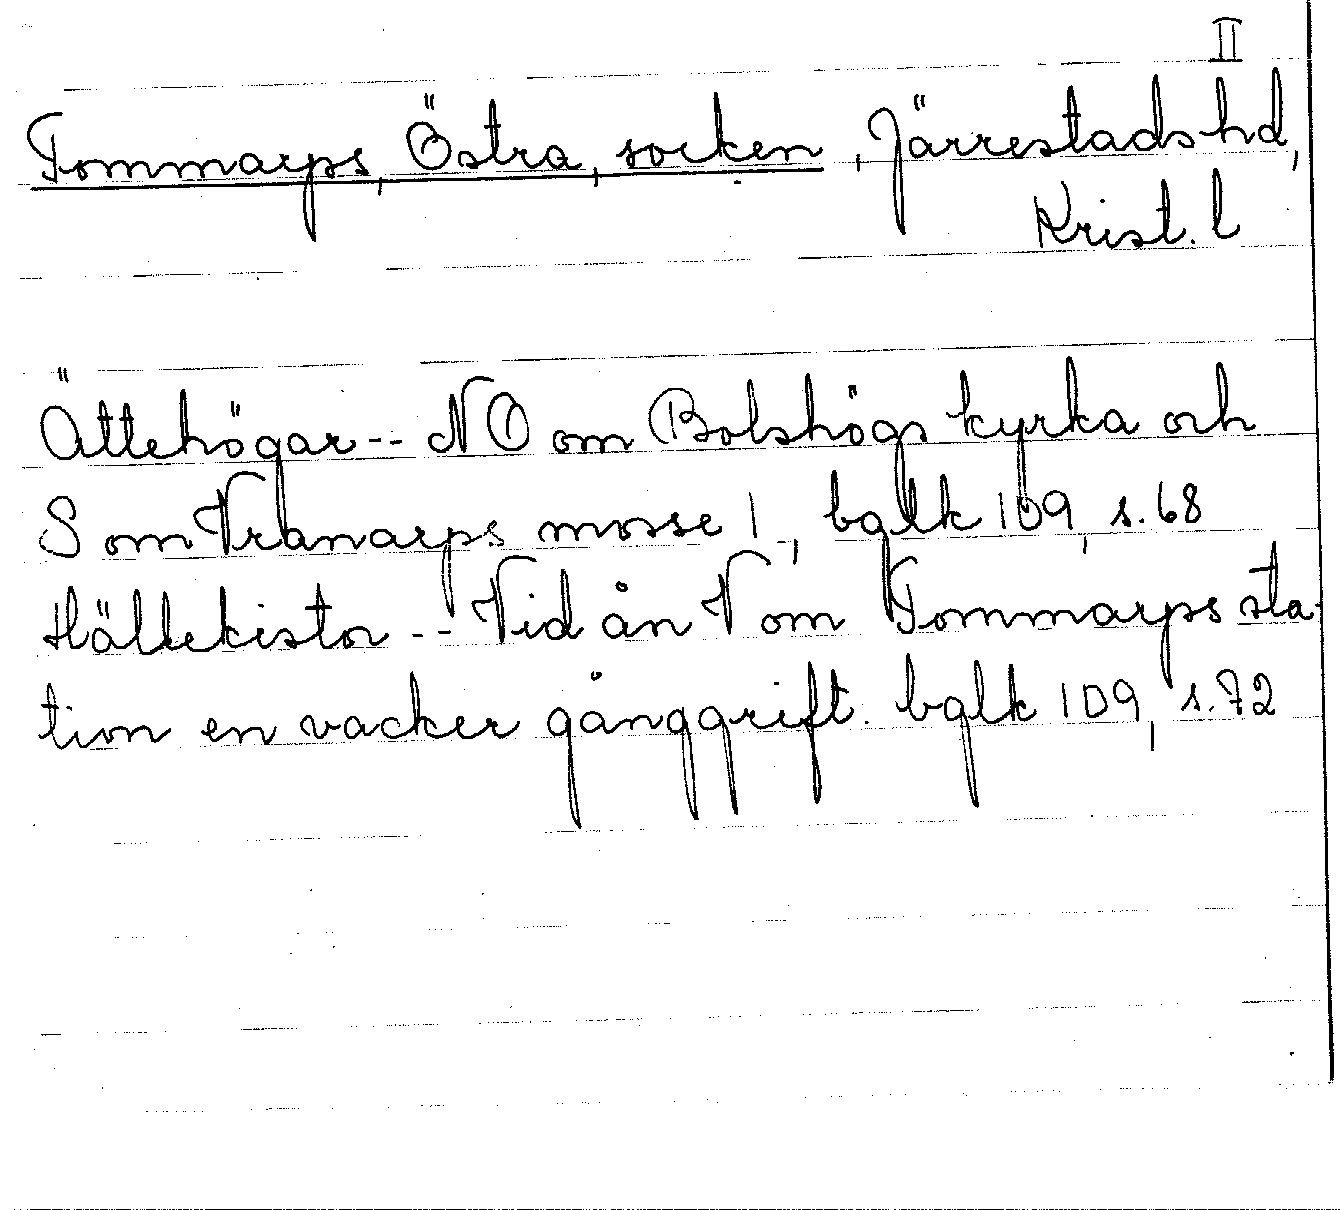 II
Tommarps, Östra, socken, Järrestads hd,
Krist. l
Ättehögar -- NO om Bolshögs kyrka och
S om Vranarps mosse 1, bglk 109, s. 68
Hällekistor -- Vid ån V om Tommarps sta-
tion en vacker gånggrift. bglk 109, s. 72